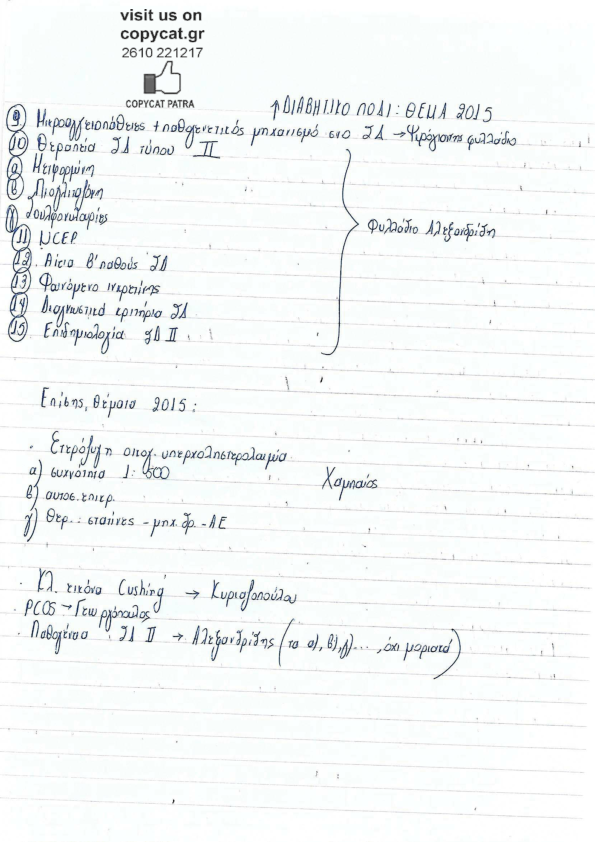 visit us on
copycat.gr
2610 221217
COPYCAT PATRA
↑ ΔΙΑΒΗΤΙΚΟ ΠΟΔΙ: ΘΕΜΑ 2015
9. Μικροαγγειοπάθειες + παθογενετικός μηχανισμό στο ΣΔ → φυλλάδιο
10 Θεραπεία ΣΔ τύπου II
α Μετφορμίνη
β Πιογλιταζόνη
γ Σουλφονυλουρίες
11 NCEP
12 Αίτια β'παθούς ΣΔ
13 Φαινόμενο ινκρετίνης
14 Διαγνωστικά κριτήρια ΣΔ
15 Επιδημιολογία ΣΔ II
Φυλλάδιο Αλεξανδρίδη
Επίσης, Θέματα 2015:
. Ετερόζυγη οικογ. υπερχοληστερολαιμία
α) συχνότητα 1:500
β) αυτοσ. επικρ.
γ) Θερ.: στατίνες - μηχ. δρ. - ΑΕ
. Κλ. εικόνα Cushing → Κυριαζοπούλου
. PCOS → Γεωργόπουλος
. Παθογένεια ΣΔ II → Αλεξανδρίδης (το α), β), γ)..., όχι μοριακά)